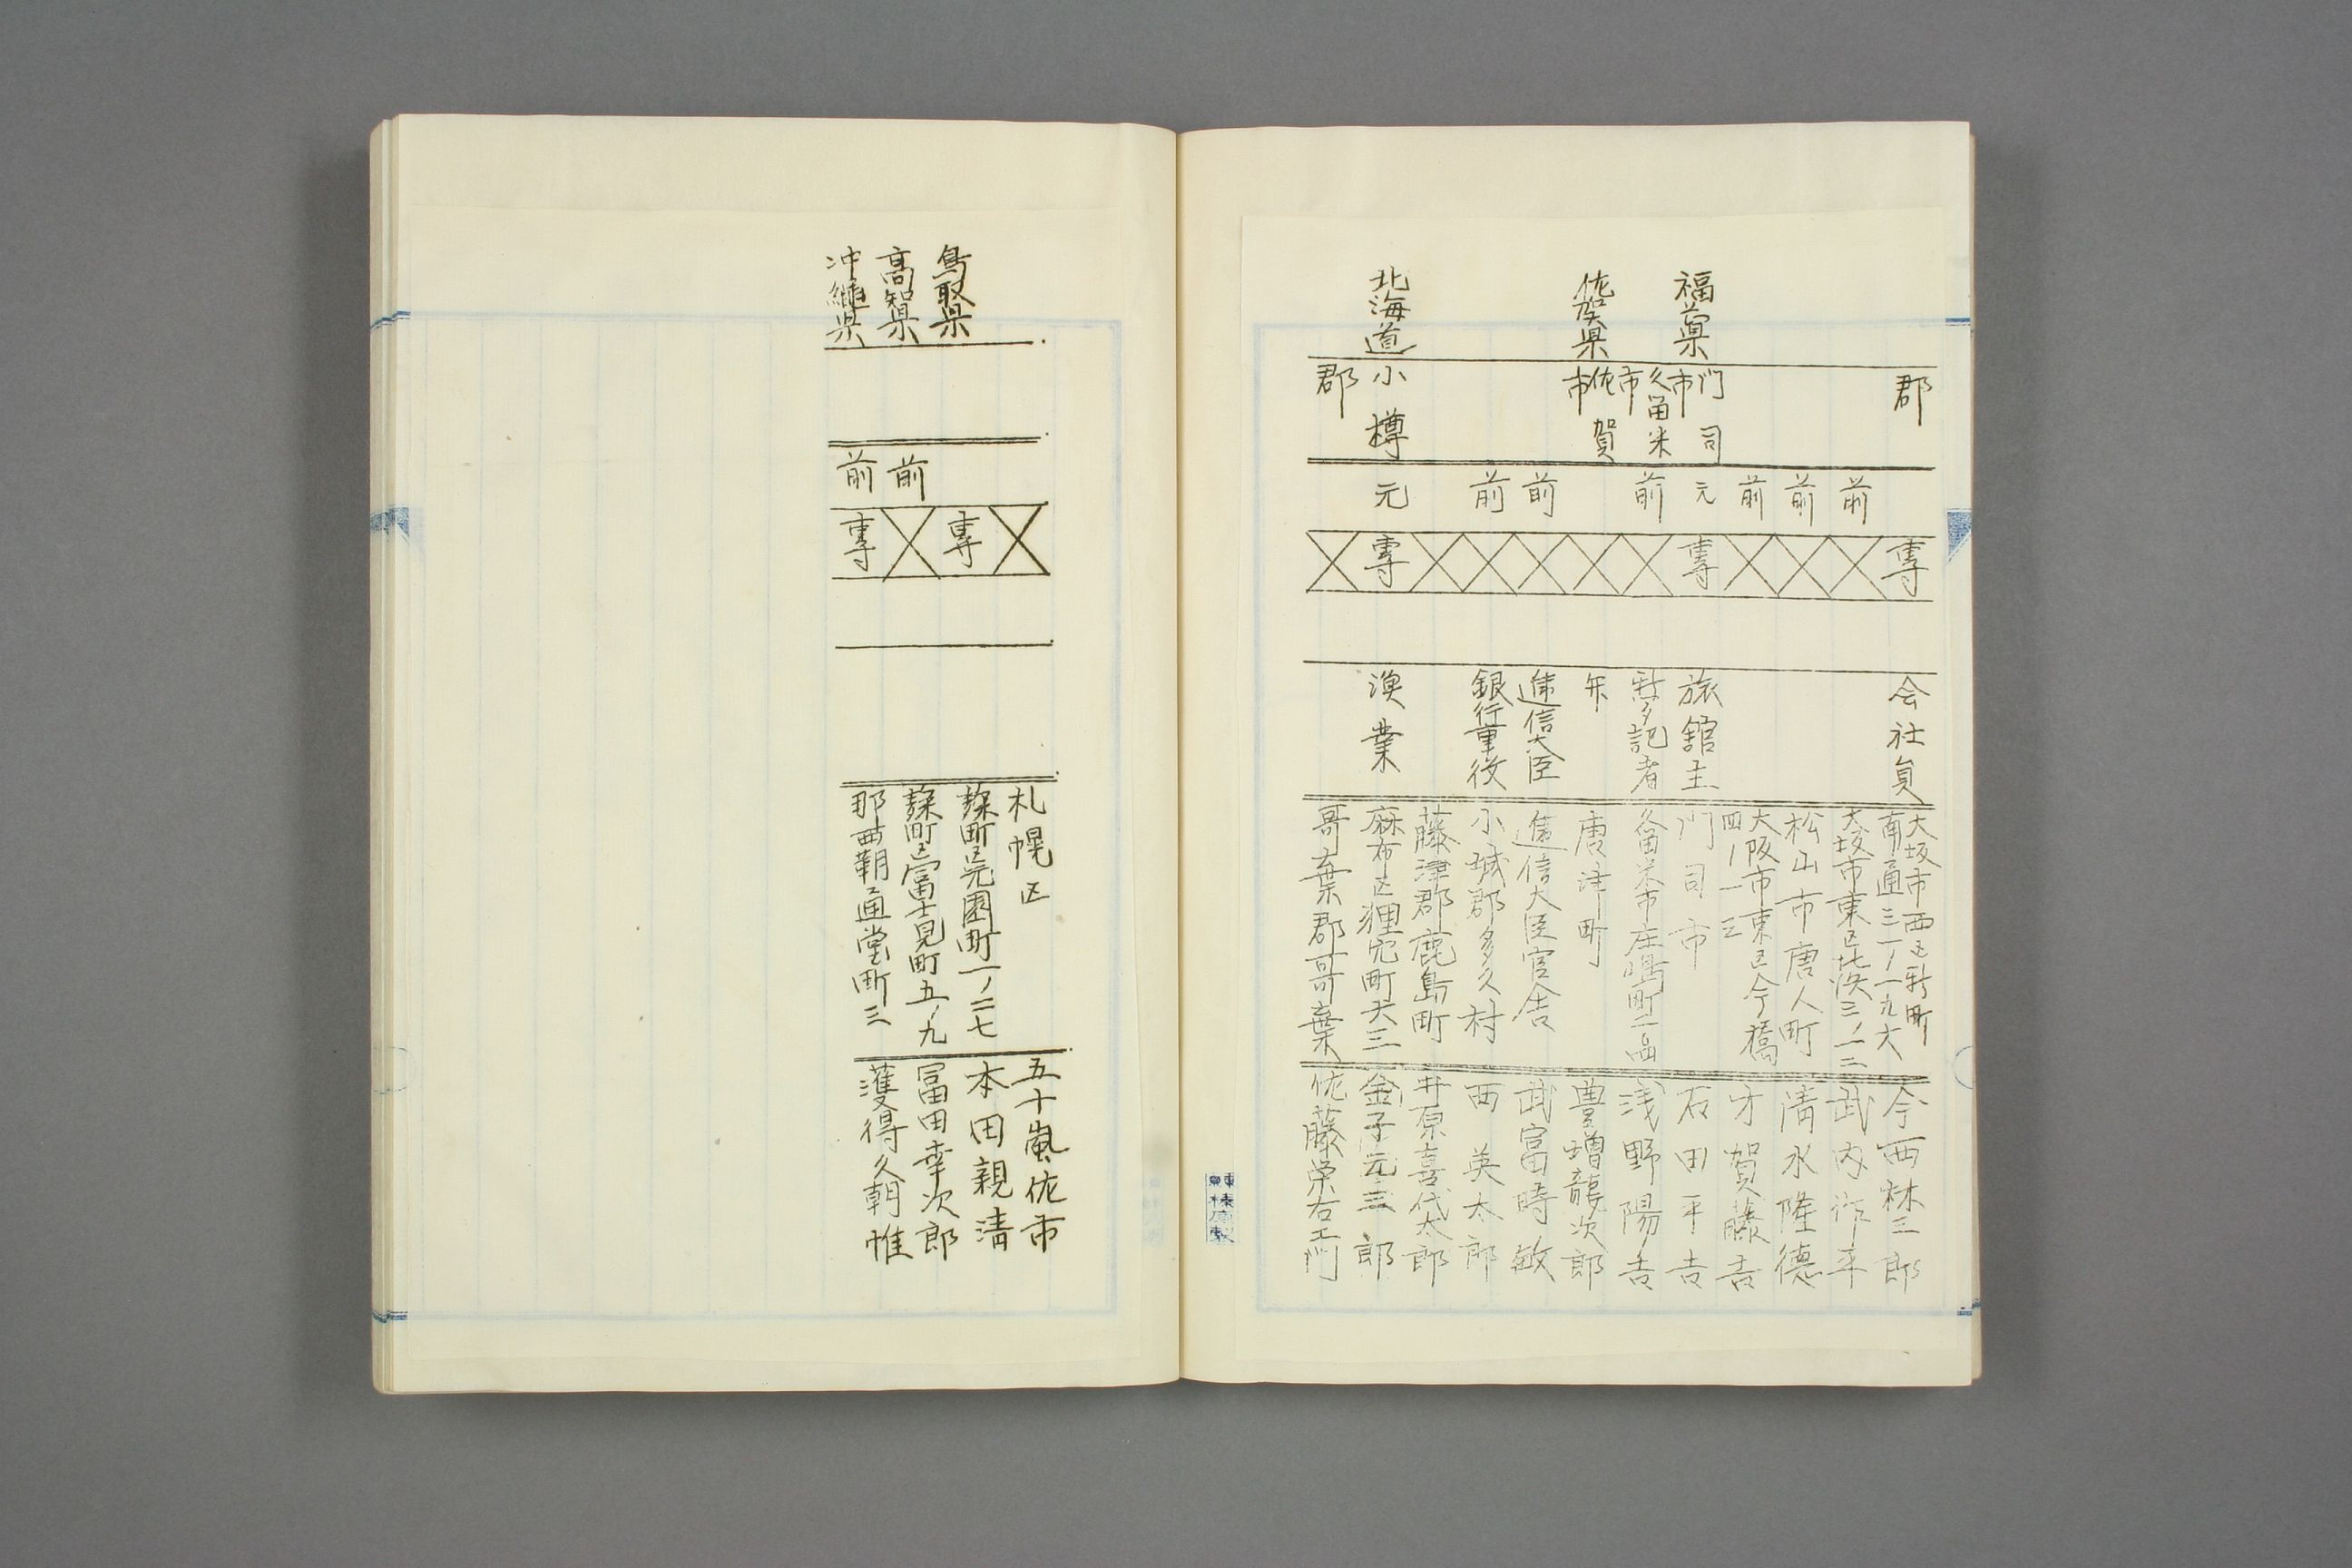 福岡県
佐賀県
北海道
郡
門司市
久留米市
佐賀市
小樽
郡
前
前
前
元
前
前
前
元
専
専
専
会社員
旅館主
新聞記者
弁
逓信大臣
銀行重役
漁業
大坂市西区新町南通三ノ一九六
大坂市東区北浜三ノ一二
松山市唐人町
大阪市東区今橋四ノ一三
門司市
久留米市庄嶋町一西
唐津町
逓信大臣官舎
小城郡多久村
藤津郡鹿島町
麻布区狸穴町六三
哥棄郡哥棄
今西林三郎
武内作平
清水隆徳
才賀藤吉
石田平吉
浅野陽吉
豊増龍次郎
武富時敏
西英太郎
井原喜代太郎
金子元三郎
佐藤栄右エ門
鳥取県
高智県
沖縄県
前
前
専
専
札幌区
麹町区元園町一ノ二七
麹町区富士見町五ノ九
那覇通堂町三
五十嵐佐市
本田親清
冨田幸次郎
護得久朝惟